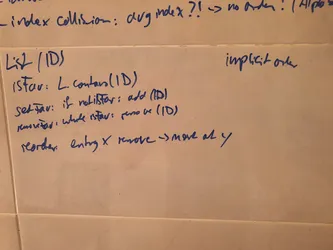 index collision: avg index?! → no order!
List (ID)
implicit order
isFav: L.contains(ID)
setFav: if not isFav: add(ID)
removeFav: while isFav: remove(ID)
reorder: entry X remove → move at y